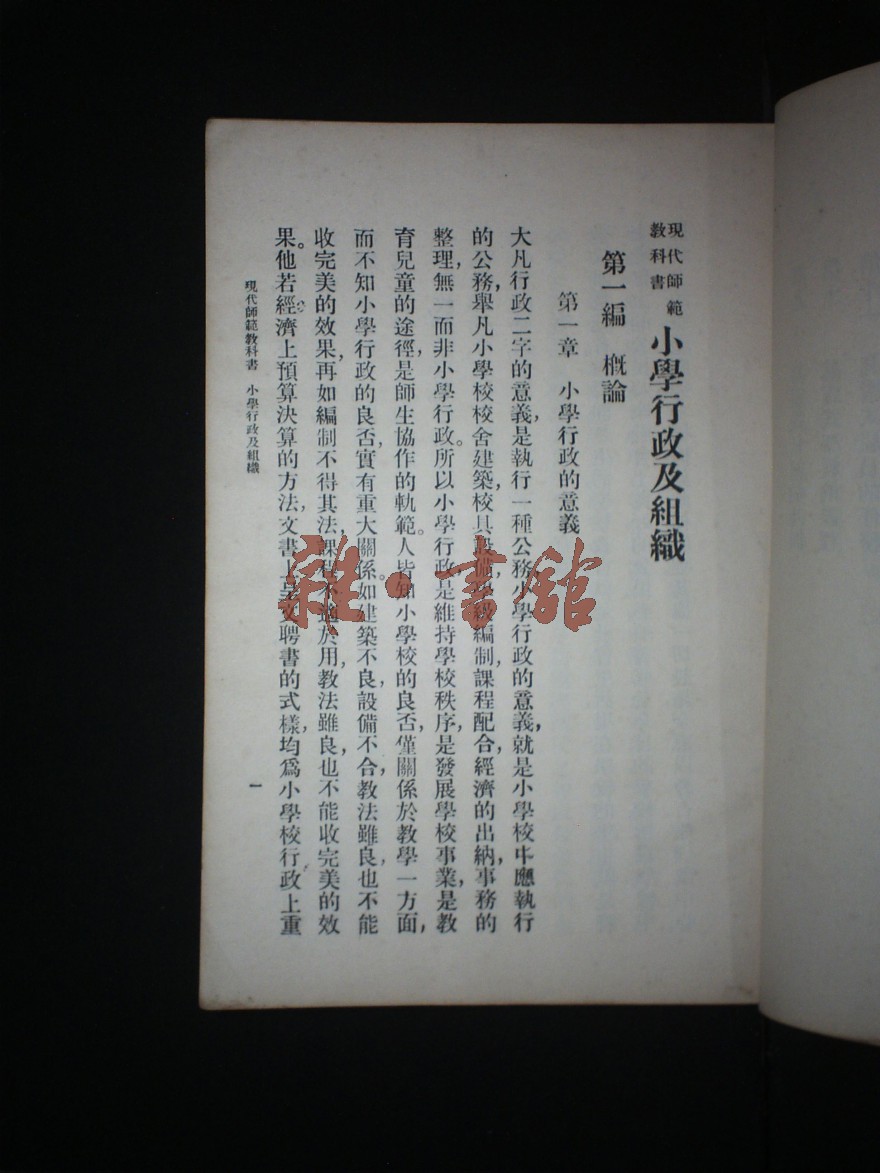 現代師範
教科書
小學行政及組織
第一編　概論
第一章　小學行政的意義
大凡行政二字的意義，是執行一種公務小學行政的意義，就是小學校中應執行
的公務，舉凡小學校校舍建築，校具設備，學級編制，課程配合，經濟的出納，事務的
整理，無一而非小學行政。所以小學行政，是維持學校秩序，是發展學校事業，是教
育兒童的途徑，是師生協作的軌範。人皆知小學校的良否，僅關係於教學一方面，
而不知小學行政的良否，實有重大關係。如建築不良，設備不合，教法雖良，也不能
收完美的效果，再如編制不得其法，課程不適於用，教法雖良，也不能收完美的效
果。他若經濟上預算決算的方法，文書上呈文聘書的式樣，均爲小學校行政上重
現代師範教科書　小學行政及組織
一
雜·書館